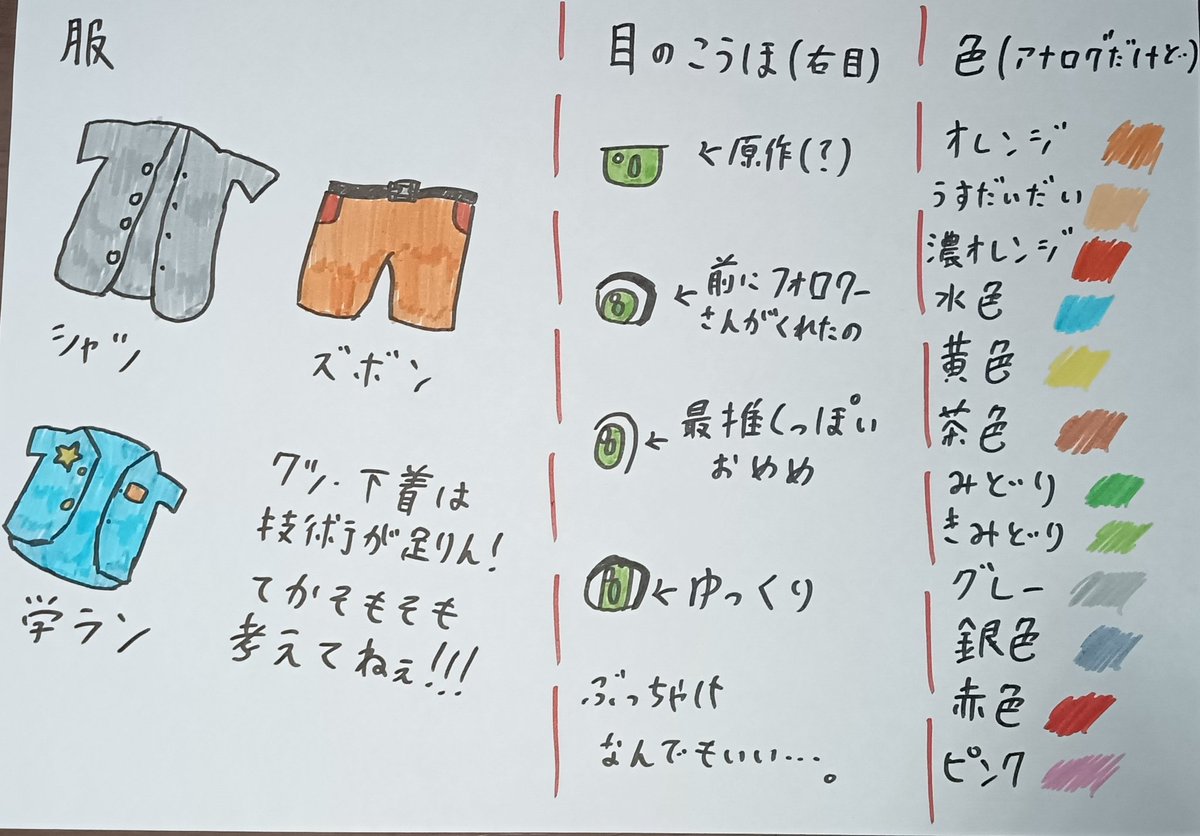 服
シャツ
ズボン
学ラン
グッ…下着は
技術が足りん!
てかそもそも
考えてねぇ!!!
目のこうほ(右目)
←原作(?)
←前にフォロワー
さんがくれたの
←最推しっぽい
おめめ
←ゆっくり
ぶっちゃけ
なんでもいい…。
色(アナログだけど…)
オレンジ
うすだいだい
濃オレンジ
水色
黄色
茶色
みどり
きみどり
グレー
銀色
赤色
ピンク